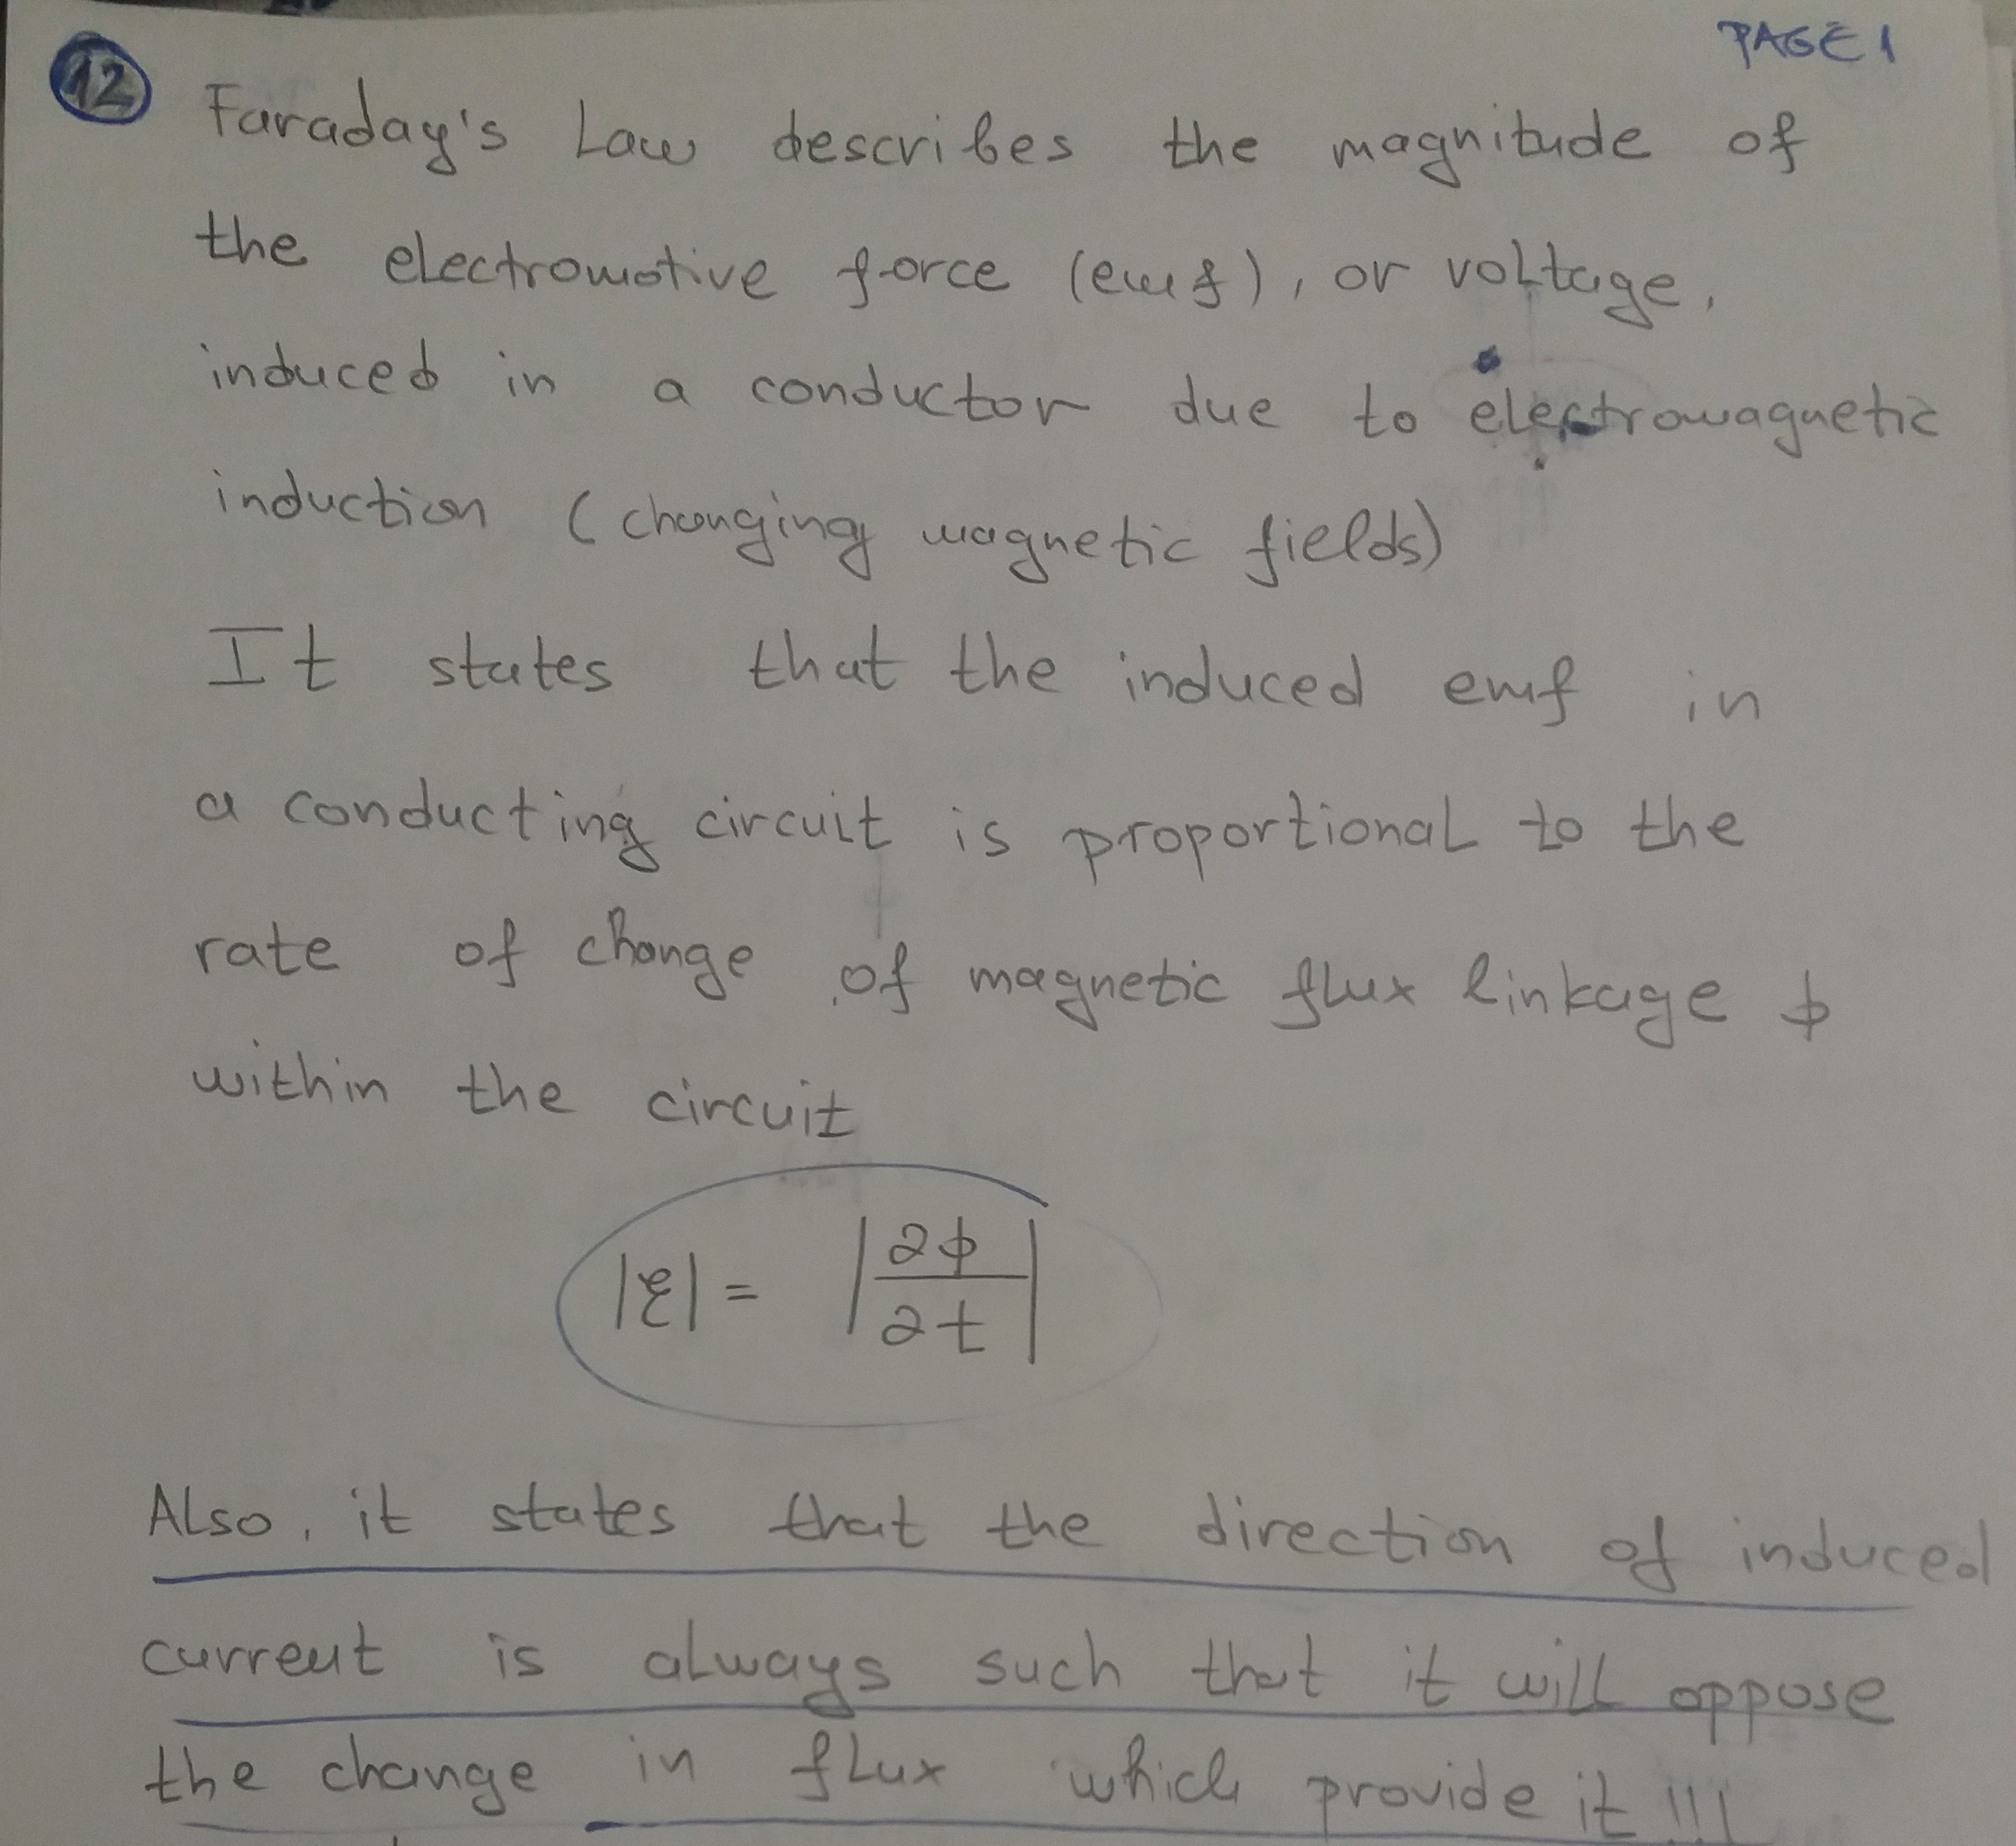 PAGE 1
12
Faraday's Law describes the magnitude of
the electromotive force (emf), or voltage,
induced in a conductor due to electromagnetic
induction (changing magnetic fields)
It states that the induced emf in
a conducting circuit is proportional to the
rate of change of magnetic flux linkage ϕ
within the circuit
|ε| = |∂ϕ/∂t|
Also, it states that the direction of induced
current is always such that it will oppose
the change in flux which provide it!!!